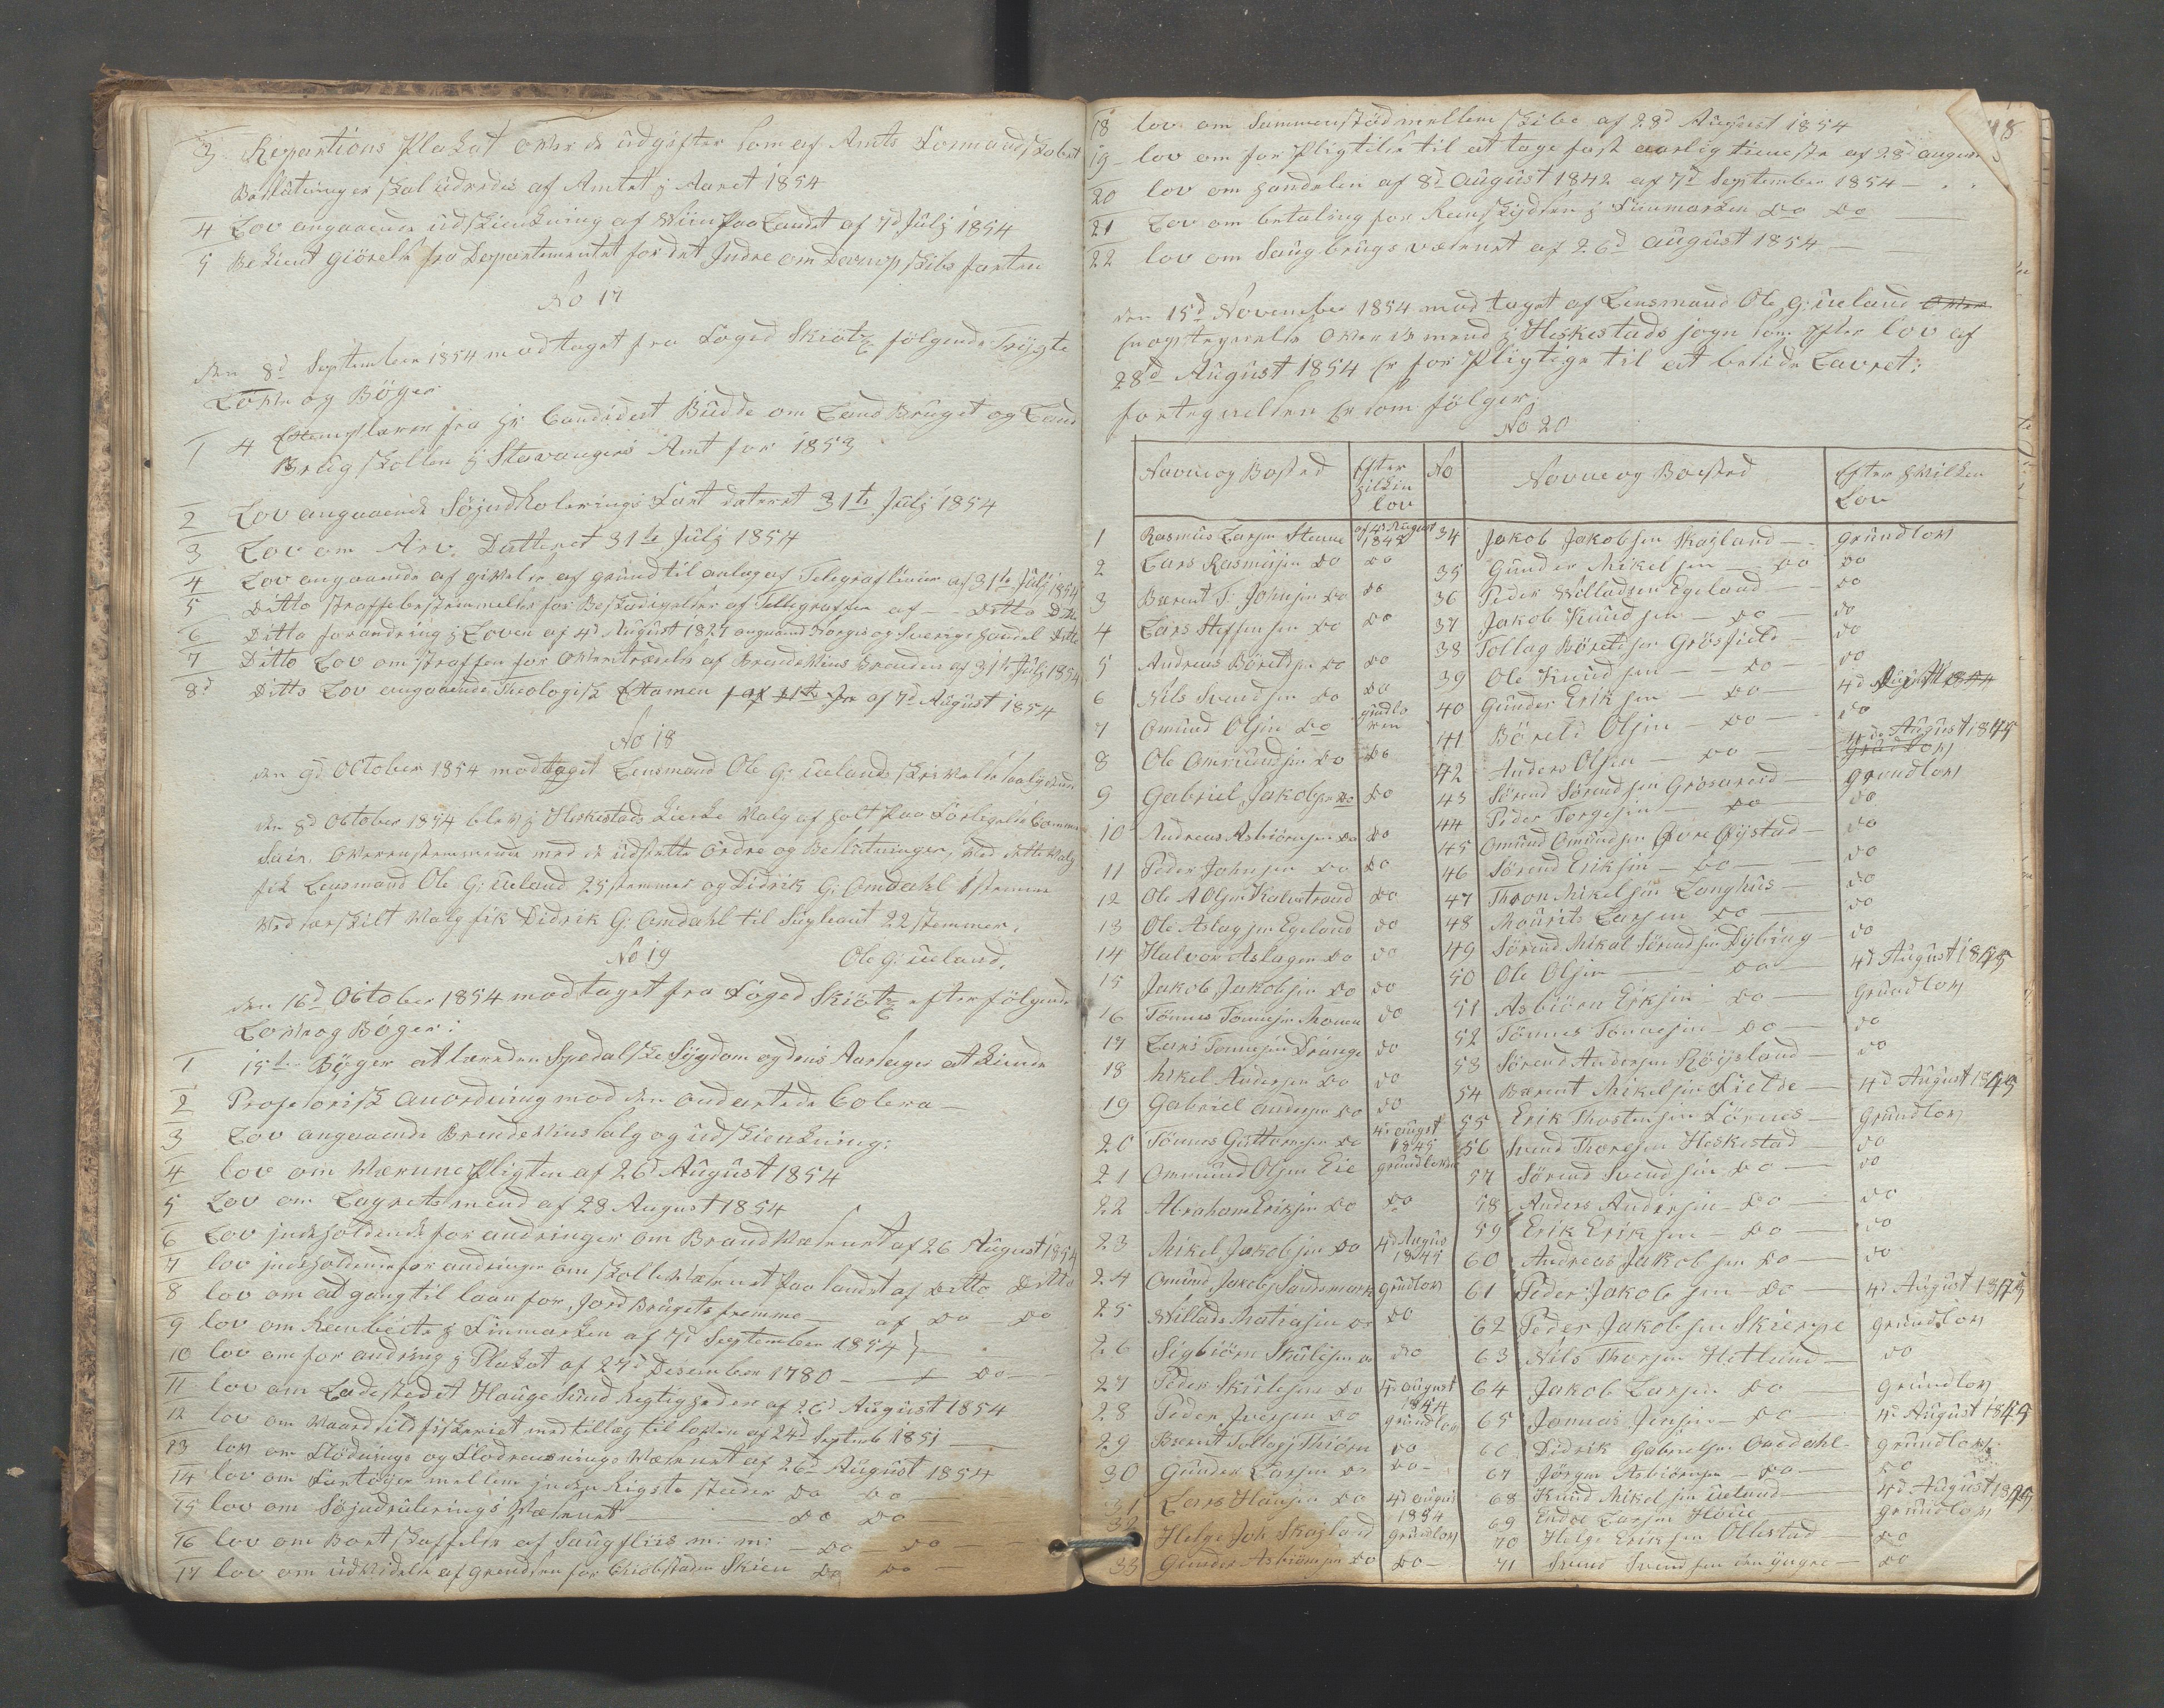 3 Repartions Plakat over de udgifter som af Amts Formandskabet
Beslutninger skal udredes af Amtet j Aaret 1854
4 Lov angaaende udskienkning af Wiin paa Landet af 7d Julj 1854
5 Bekient giörelse fra Departementet for det Jndre om Dampskibs farten
No 17
den 8d September 1854 modtaget fra Foged Skiötz følgende Trygte
Love og Böger
1 4 Exemplarer fra Hr Candidat Budde om Land Bruget og Land
Brugskollen j Stavangers Amt for 1853
2 Lov angaaende Söjndholerings Fart dateret 31te Julj 1854
3 Lov om Arv. Datteret 31te Julj 1854
4 Lov angaaende af givelse af grund til anlæg af Telegraflinier af 31te Julj 1854
5 Ditto straffebestemmelse for Beskadigelse af Tellegraffen af - - Ditto Ditto
6 Ditto forandring j Loven af 4d August 1827 angaaende Norges og Sverigs handel Ditto
7 Ditto Lov om straffen for overtrædelse af Brendevins Brenden af 31te Julj 1854
8d Ditto Lov angaaende Theologisk Examen af 7d August 1854
No 18
den 9d October 1854 modtaget Lensmand Ole G: Ueland skrivelse saalydende
den 8d October 1854 blev j Heskestads Kierke Valg af holt paa Forligelses Commis
Sair. Overensstemmende med de udsatte Ordre og Beslutninger, ved dette Valg
fik Lensmand Ole G: Ueland 25 stemmer og Didrik G: Omdahl 1 stemme
Ved særskilt Valg fik Didrik G. Omdahl til Supleant 22 stemmer.
No 19 Ole G: Ueland.
den 16d October 1854 modtaget fra Foged Skiötz efterfølgende
Love og Böger:
1 15ten Böger at lære den Spedalske Sygdom og dens Aarsager at kiende
2 Profetorisk anordning mod den ondartede Colera -
3 Lov angaaende Brendevins salg og udskienkning:
4 lov om Værnepligten af 26d August 1854
5 Lov om Lagrettemend af 28 August 1854
6 Lov jndeholdende forandringer om Brandvæsenet af 26 August 1854
7 lov jndeholdende forandringer om skollevæsenet paa landet af Ditto Ditto
8 lov om adgang til laan for Jord Brugets fremme - af Do Do
9 lov om Renbeite j Finmarken af 7d September 1854
10 lov om forandring j Plakat af 27d Desember 1780 - Do -
11 lov om Ladestedet Hauge Sund Regtigheder af 26d August 1854
12 lov om Vaarsildfiskeriet med tillæg til loven af 24d Septemb 1851 -
13 lov om Flödnings og Flödrensnings Væsenet af 26d August 1854
14 lov om Fartöier mellem jnden Rigste steder Do Do
15 lov om Söjndrulerings Væsenet - Do Do
16 lov om Bortskaffelse af Saugfliis m: m: - Do Do
17 lov om udvidelse af grendsen for Kiöbstaden Skien Do Do
18
18 lov om Sammenstöd mellem skibe af 28d August 1854
19 lov om forpligtelse til at tage fast aarlig tieneste af 28d august
20 lov om handelen af 8d August 1842 af 7d September 1854 -
21 Lov om betaling for Ranskydsen j Finmarken Do Do
22 lov om Saugbrugs væsenet af 26d august 1854
den 15d November 1854 modtaget af Lensmand Ole G: Ueland
en optegnelse over de mend j Heskestads sogn som efter lov af
28d August 1854 er forpligtige til at betiede Lavret:
fortegnelsen er som følger:
No 20
Navne og Bosted | Efter hvilken lov | No | Navne og Boested | Efter hvilken Lov
1 Rasmus Larsen Steene af 4d August 1845 34 Jakob Jakobsen Skajland - grundlov
2 Lars Rasmusen Do Do 35 Gunder Mikelsen - Do Do
3 Berent T. Johnsen Do Do 36 Peder Willadsen Egeland - Do
4 Lars Steffensen Do Do 37 Jakob Knudsen - Do - Do
5 Andreas Böretsen Do Do 38 Tollag Böretsen Grösfield - Do
6 Nils Svendsen Do Do 39 Ole Knudsen - Do - Do
7 Omund Olsen Do grundloven 40 Gunder Eriksen - Do - 4d August
8 Ole Ommundsen Do Do 41 Böreld Olsen - Do - Do
9 Gabriel Jakobsen Do Do 42 Anders Olsen - Do - 4de August 1845
10 Andreas Asbiörnsen Do Do 43 Sörend Sörendsen Grösareid - grundlov
11 Peder Johnsen Do Do 44 Peder Torgesen - Do - Do
12 Ole A Olsen Kalvetraad Do 45 Omund Omundsen Övre Öystad - Do
13 Ole Aslagsen Egeland Do 46 Sörend Eriksen - Do - Do
14 Halvor Aslagsen Do Do 47 Thoon Mikelsen Langhus - Do
15 Jakob Jakobsen Do Do 48 Maurits Larsen Do - Do
16 Tönnes Tönnesen Mouen Do 49 Sörend Mikal Sörendsen Dybing - Do
17 Lars Tönnesen Drange Do 50 Ole Olsen - Do - 4d August 1845
18 Mikel Andersen Do Do 51 Asbiörn Eriksen - Do - grundlov
19 Gabriel Andersen Do Do 52 Tönnes Tönnesen - Do - Do
20 Tönnes Guttormsen Do 4d august 1845 53 Sörend Andersen Röysland - Do
21 Ommund Olsen Eie grundloven 54 Berent Mikelsen Fielde - 4d August 1845
22 Abraham Eriksen Do Do 55 Erik Thostensen Förnes - grundlov
23 Mikel Jakobsen Do 4d Augus 1845 56 Svend Thoresen Heskestad - Do
24 Omund Jakobs Sandsmark grundlov 57 Sörend Svendsen Do - Do
25 Willads Matiasen Do Do 58 Anders Andersen - Do - Do
26 Sigbiörn Skulesen Do Do 59 Erik Eriksen - Do - Do
27 Peder Skulesen Do 4d august 1854 60 Andreas Jakobsen Do - Do
28 Peder Jversen Do grundlov 61 Peder Jakobsen - Do - 4d August 1845
29 Berent Tollags Thiörn Do 62 Peder Jakobsen Skierpe grundlov
30 Gunder Larsen Do Do - 63 Nils Thorsen Hetland - Do
31 Lars Hansen Do 4d augus 1854 64 Jakob Larsen Do - grundlov
32 Helge Joh Skajland grundlov 65 Jonnas Jensen - Do - 4d August 1845
33 Gunder Asbiörnsen Do Do - 66 Didrik Gabrielsen Omdahl - grundlov
67 Jörgen Asbiörnsen - Do - Do
68 Knud Mikelsen Ueland - 4d August 1845
69 Endre Larsen Houe - grundlov
70 Helge Eriksen Ollestad - Do
71 Svend Svendsen den yngre - Do